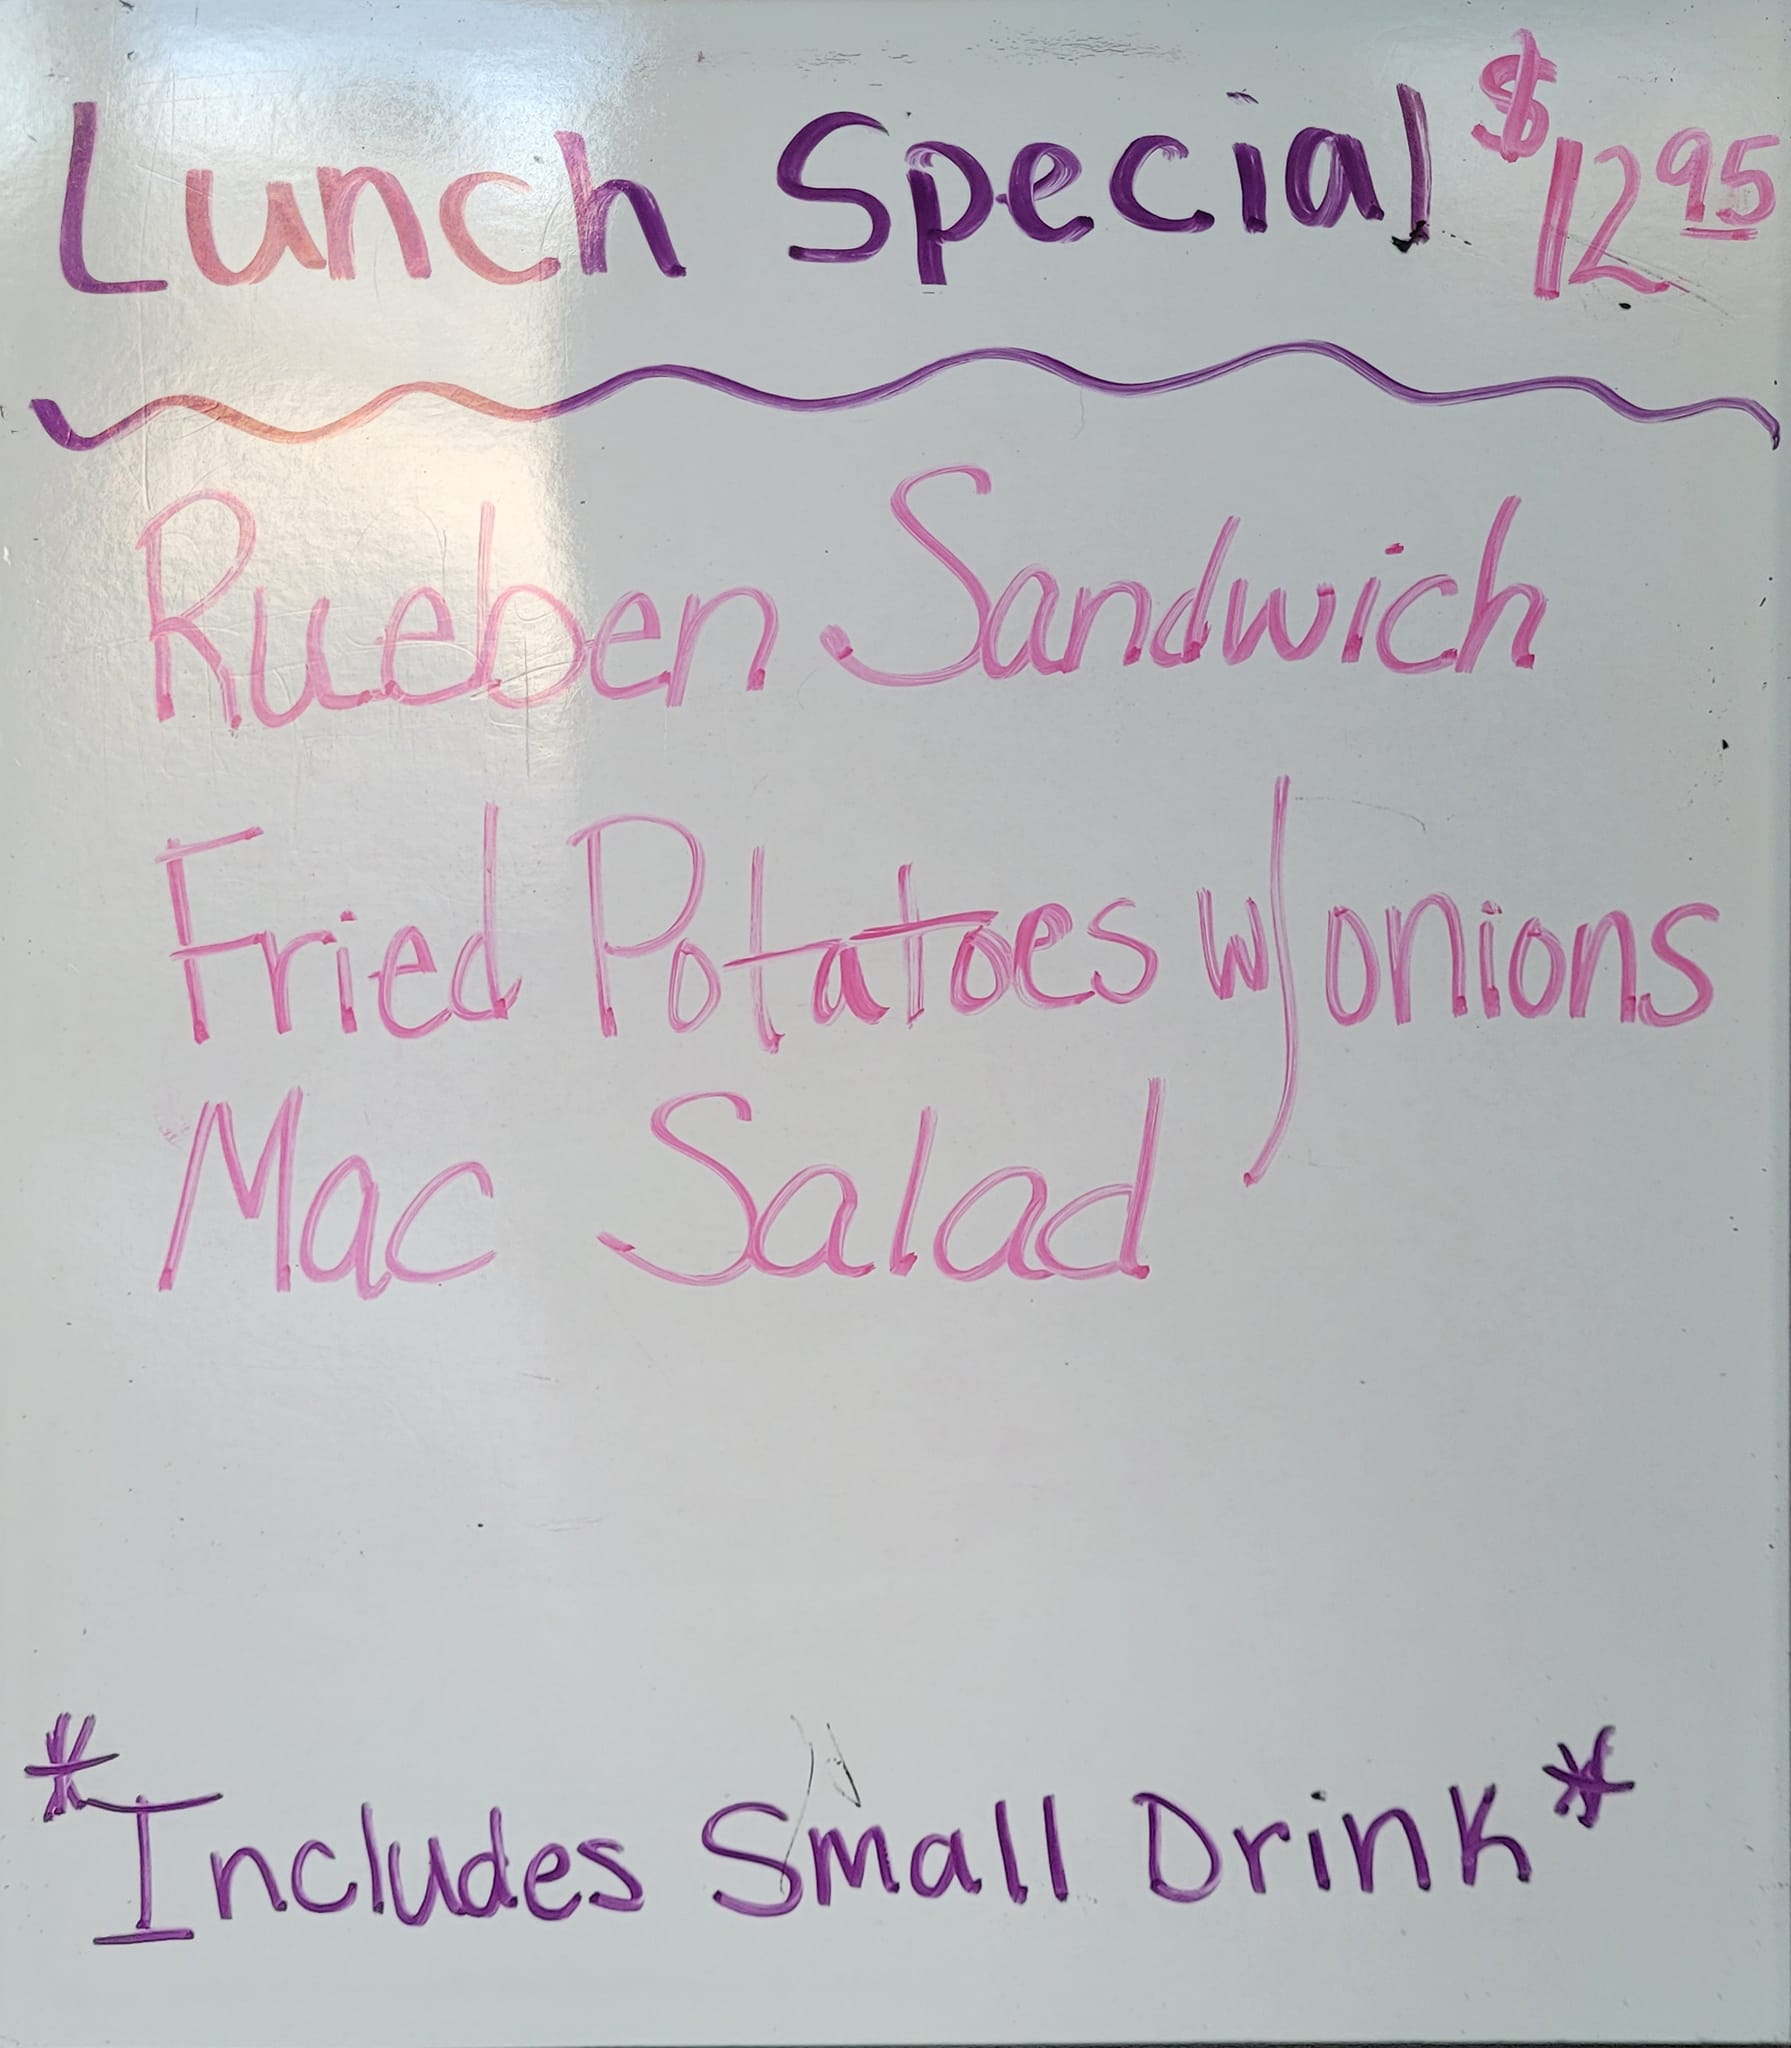 Lunch Special $12.95
Rueben Sandwich
Fried Potatoes w/onions
Mac Salad
*Includes Small Drink*